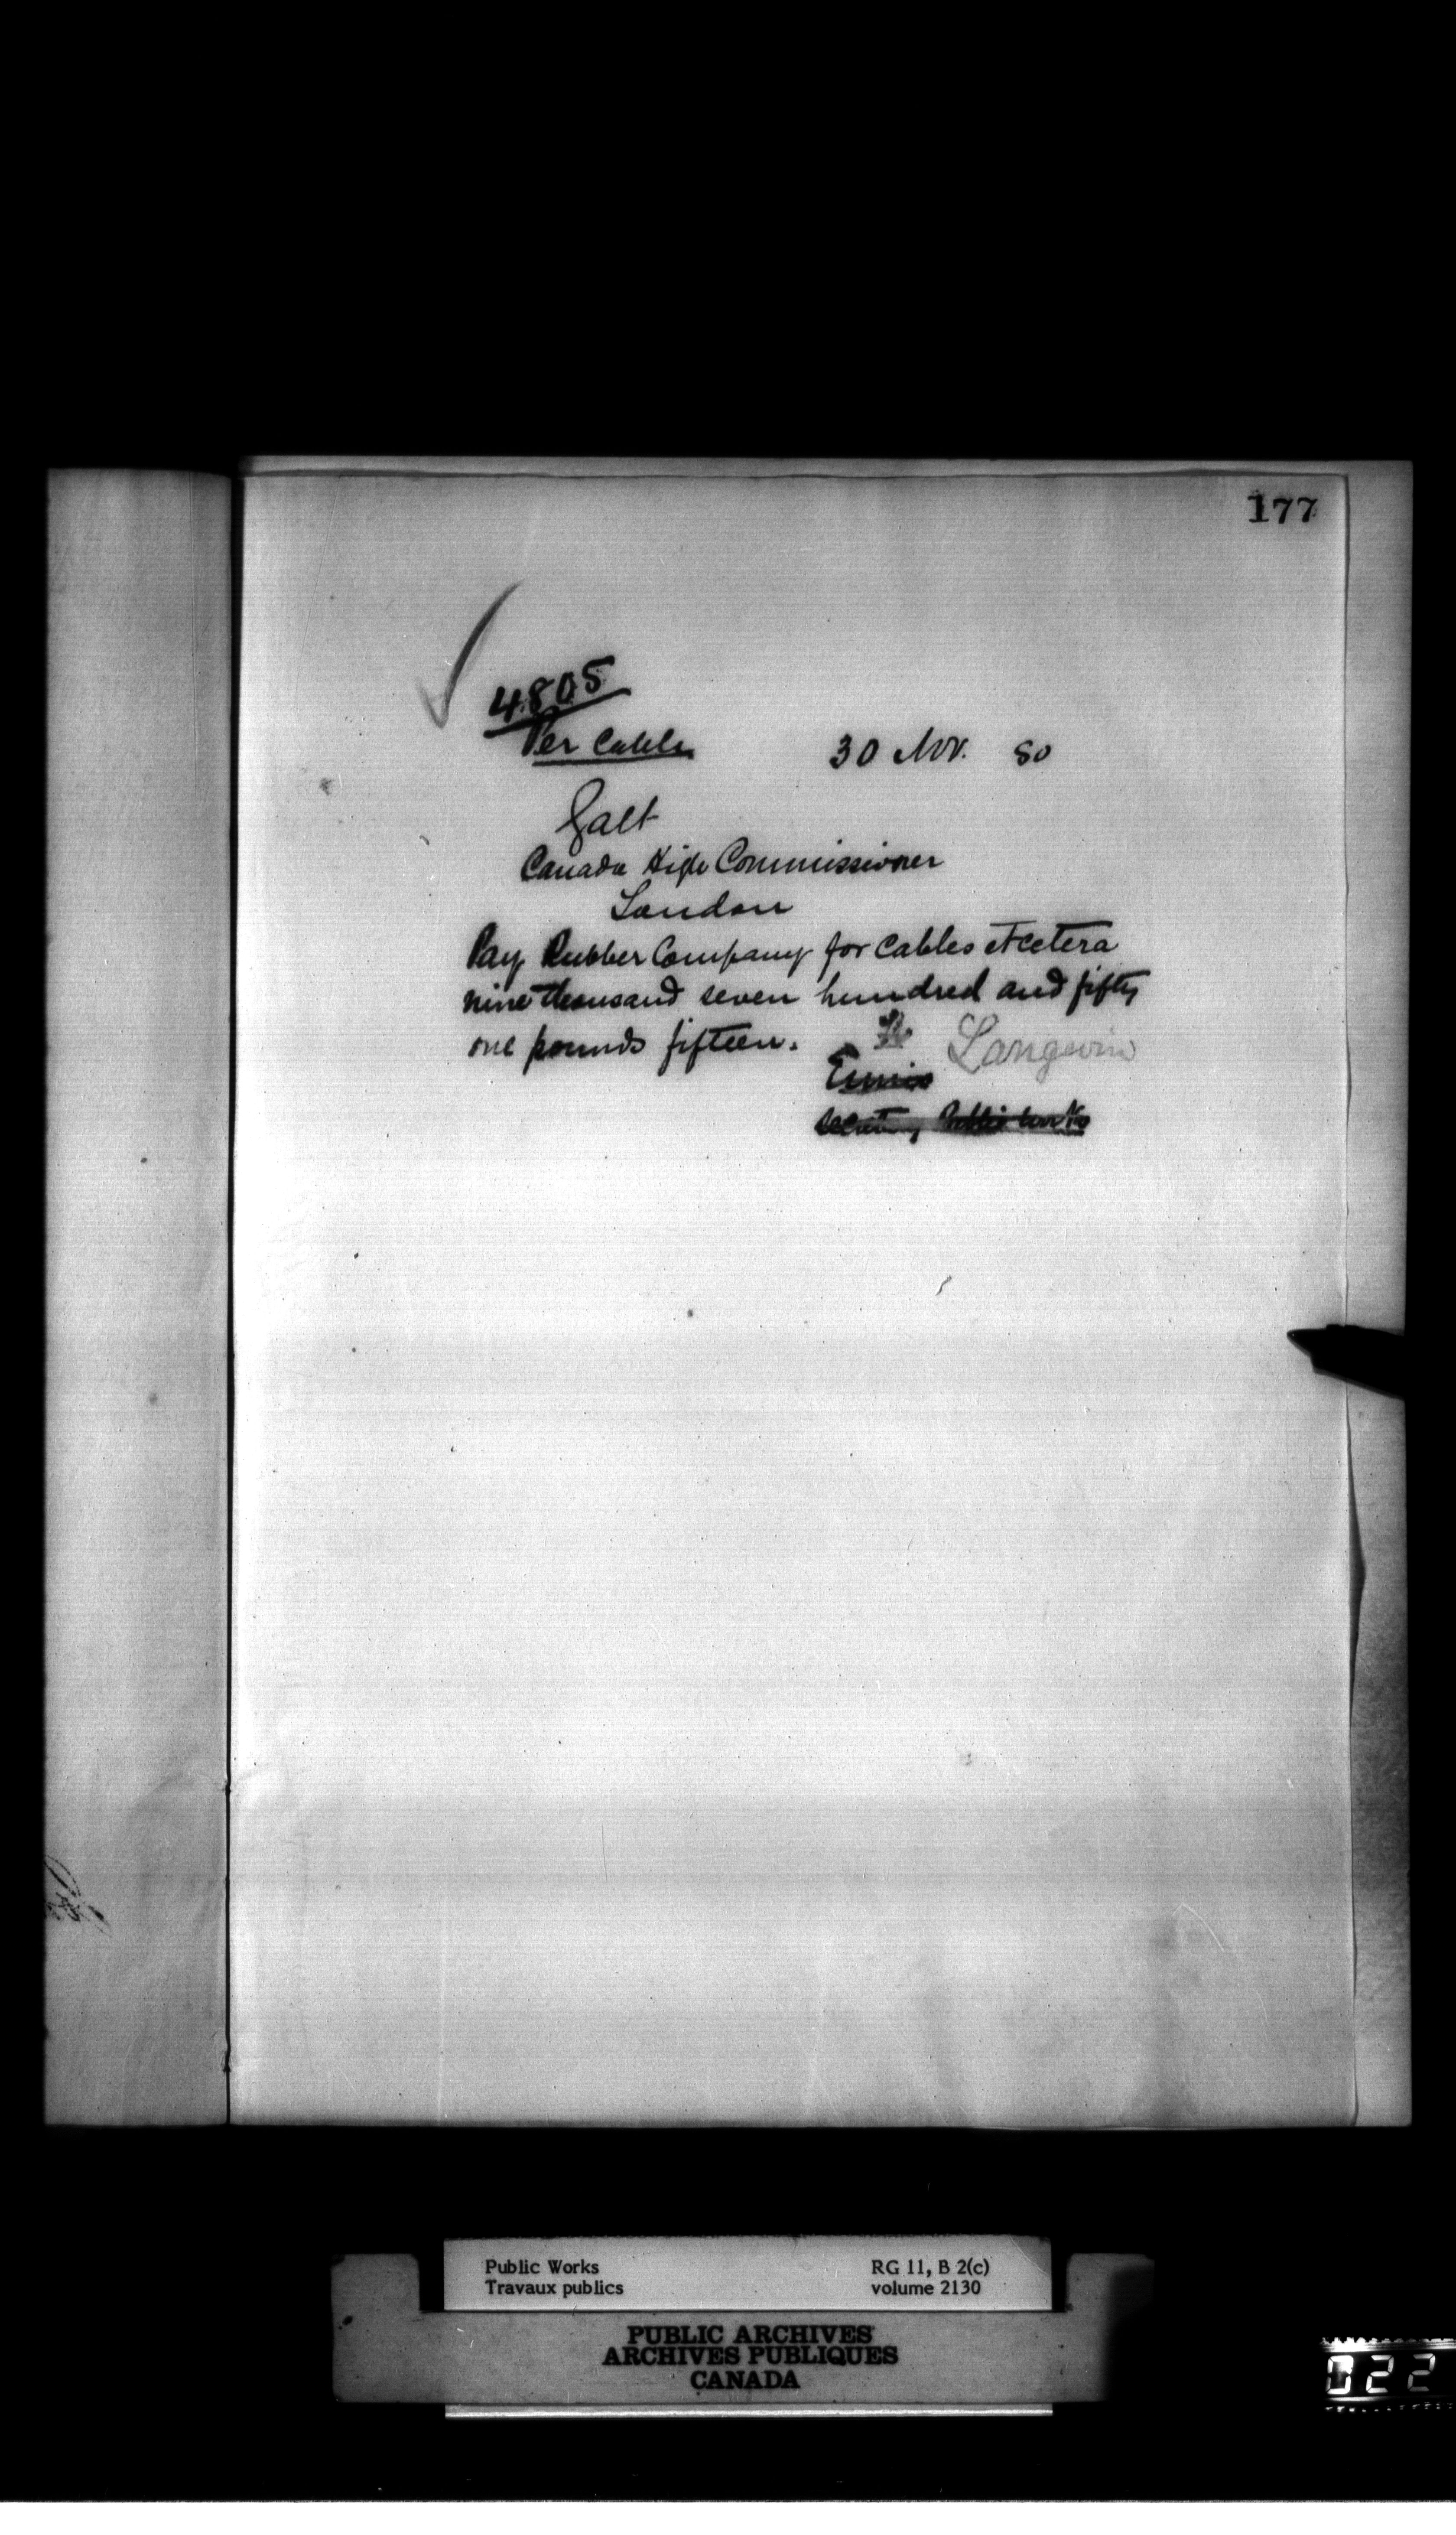 177
4805
Per Cable 30 Nov. 80
Galt
Canada High Commissioner
London
Pay Rubber Company for Cables etcetera
nine thousand seven hundred and fifty
one pounds fifteen.
Langevin
Ennis
Secretary Public Works
Public Works RG 11, B 2(c)
Travaux publics volume 2130
PUBLIC ARCHIVES
ARCHIVES PUBLIQUES
CANADA
022